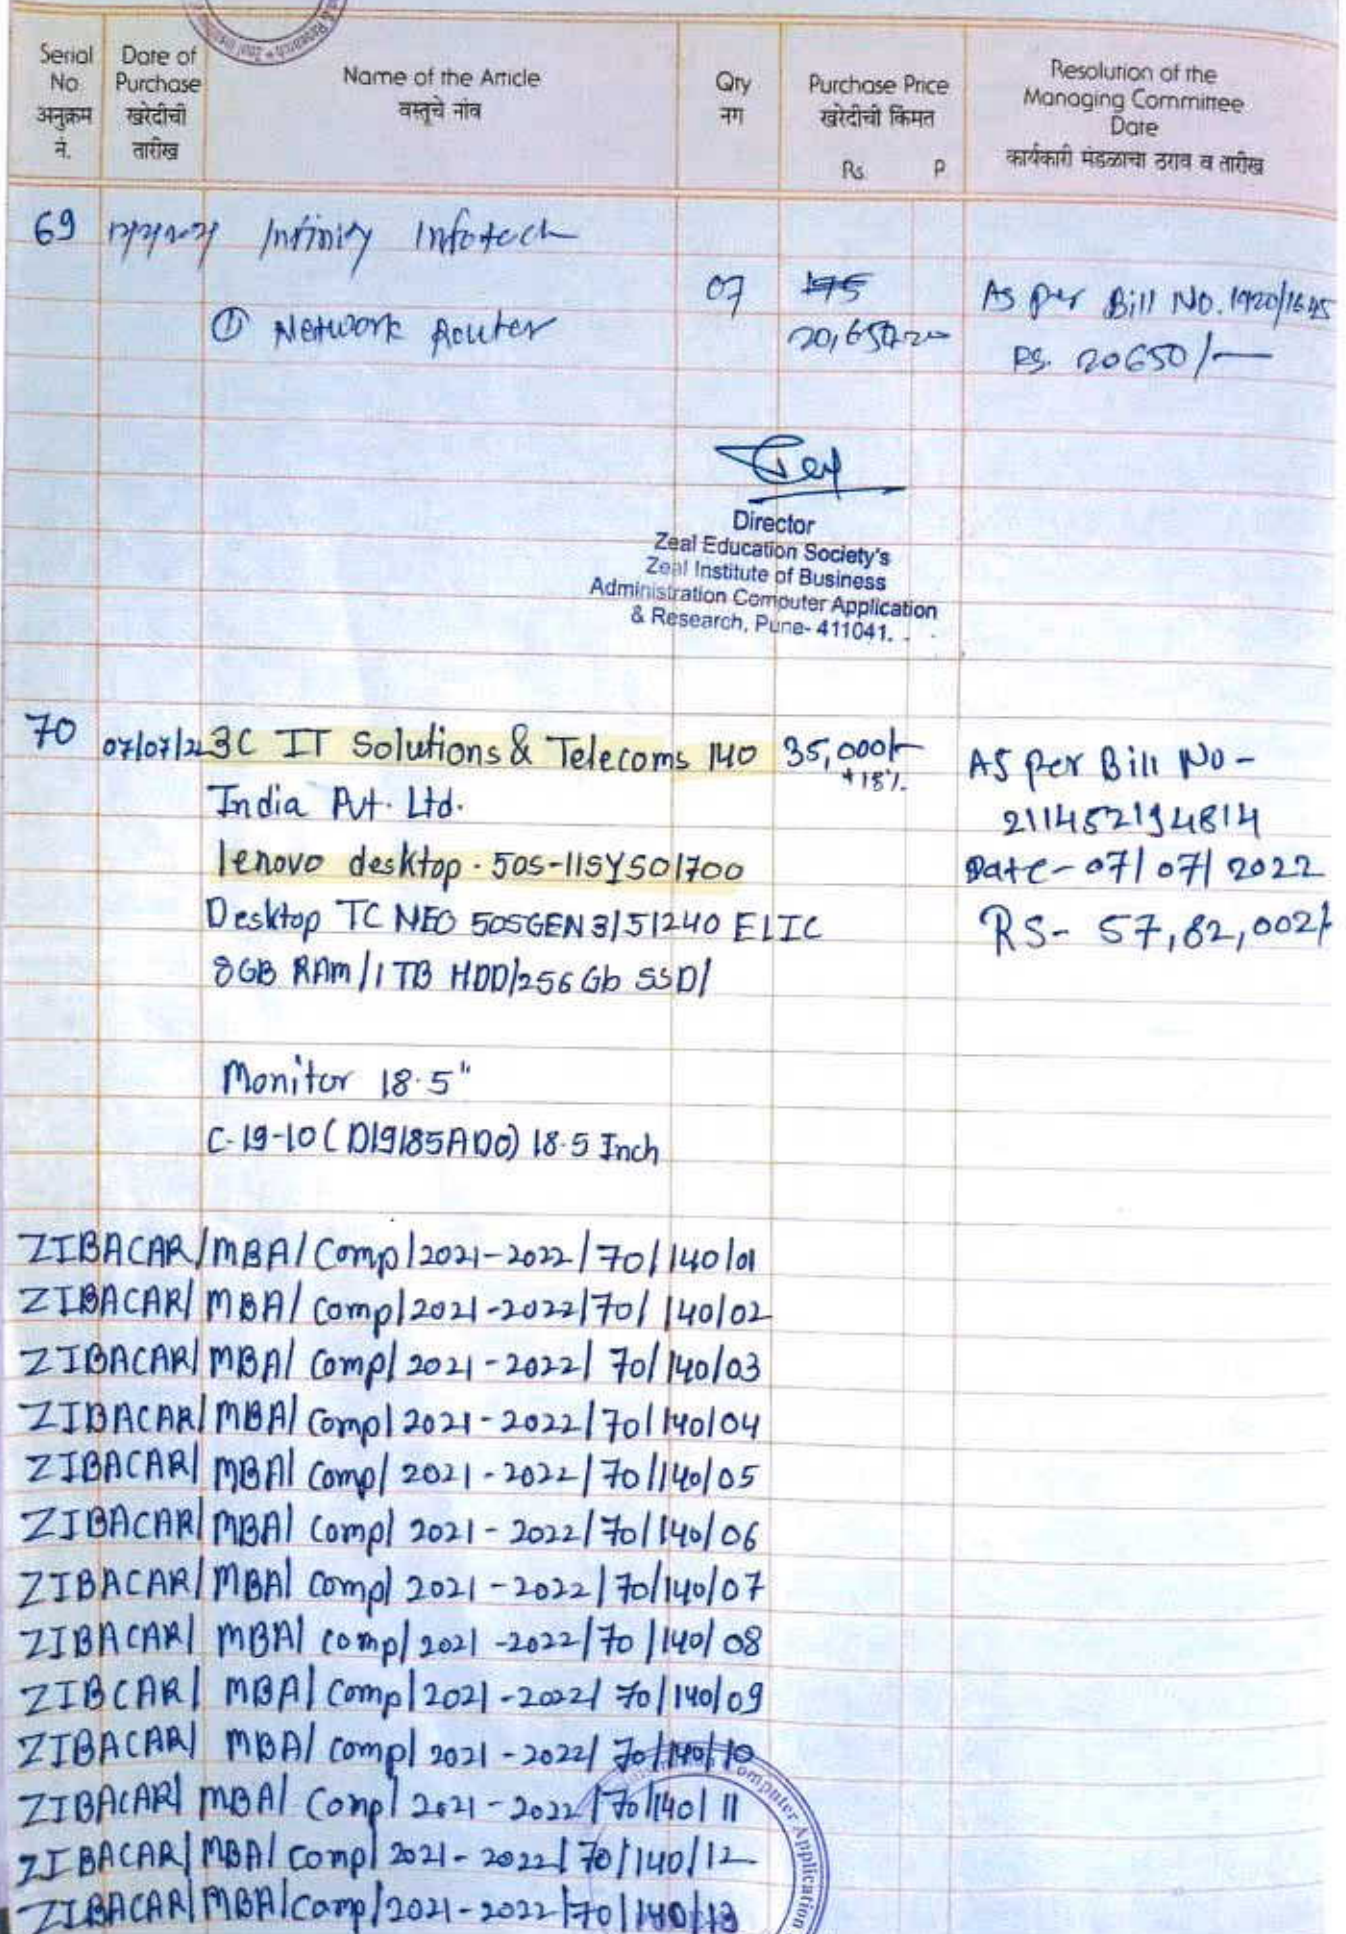 Serial No अनुक्रम नं.
Date of Purchase खरेदीची तारीख
Name of the Article वस्तूचे नांव
Qty नग
Purchase Price खरेदीची किंमत Rs. P
Resolution of the Managing Committee Date कार्यकारी मंडळाचा ठराव व तारीख
69 Infinity Infotech
① Network Router 07 175 As per Bill No.
20,650 Rs. 20650/-
Director
Zeal Education Society's
Zeal Institute of Business
Administration Computer Application
& Research, Pune- 411041.
70 07/07/22 3C IT Solutions & Telecoms 140 35,000/- As per Bill No-
+18%
India Pvt. Ltd. 211452194814
lenovo desktop. 50s-11SYS01700 Date-07/07/2022
Desktop TC NEO 50SGEN3/51240 ELIC RS- 57,82,002/-
8GB RAM/1 TB HDD/256 Gb SSD/
Monitor 18.5"
C-19-10 (D19185AD0) 18.5 Inch
ZIBACAR/MBA/Comp/2021-2022/70/140/01
ZIBACAR/MBA/Comp/2021-2022/70/140/02
ZIBACAR/MBA/Comp/2021-2022/70/140/03
ZIBACAR/MBA/Comp/2021-2022/70/140/04
ZIBACAR/MBA/Comp/2021-2022/70/140/05
ZIBACAR/MBA/Comp/2021-2022/70/140/06
ZIBACAR/MBA/Comp/2021-2022/70/140/07
ZIBACAR/MBA/Comp/2021-2022/70/140/08
ZIBCAR/MBA/Comp/2021-2022/70/140/09
ZIBACAR/MBA/Comp/2021-2022/70/140/10
ZIBACAR/MBA/Comp/2021-2022/70/140/11
ZIBACAR/MBA/Comp/2021-2022/70/140/12
ZIBACAR/MBA/Comp/2021-2022/70/140/13
Computer Application